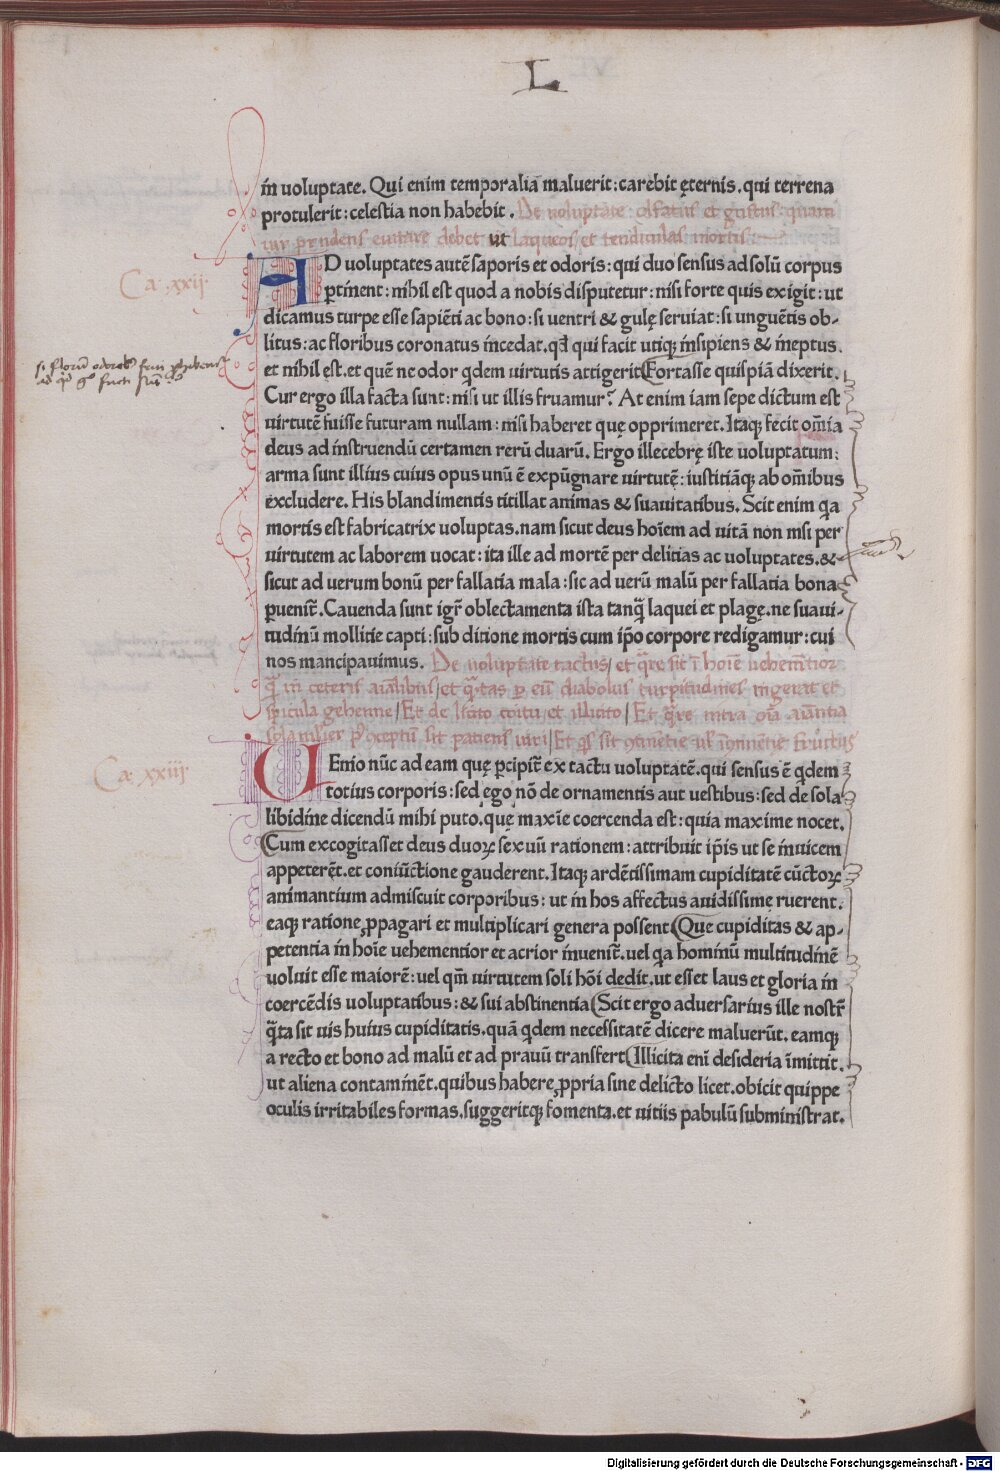 L
in uoluptate. Qui enim temporalia maluerit: carebit ęternis. qui terrena
protulerit: celestia non habebit. De uoluptate: olfatus et gustus: quam
uir prudens euitare debet ut laqueos/ et tendiculas mortis
Ca. xxij.
AD uoluptates autē saporis et odoris: qui duo sensus ad solū corpus
ꝑtinent: nihil est quod a nobis disputetur: nisi forte quis exigit: ut
dicamus turpe esse sapiēti ac bono: si uentri & gulę seruiat: si unguētis ob-
litus: ac floribus coronatus incedat. qd̄ qui facit utiqꝫ insipiens & ineptus.
et nihil est. et quē ne odor qdem uirtutis attigerit (Fortasse quispiā dixerit.
Cur ergo illa facta sunt: nisi ut illis fruamur? At enim iam sepe dictum est
uirtutē fuisse futuram nullam: nisi haberet quę opprimeret. Itaqꝫ fecit om̄ia
deus ad instruendū certamen rerū duarū. Ergo illecebrę iste uoluptatum:
arma sunt illius cuius opus unū ē expūgnare uirtutē: iustitiāqꝫ ab om̄ibus
excludere. His blandimentis titillat animas & suauitatibus. Scit enim qa
mortis est fabricatrix uoluptas. nam sicut deus hoīem ad uitā non nisi per
uirtutem ac laborem uocat: ita ille ad mortē per delitias ac uoluptates. &
sicut ad uerum bonū per fallatia mala: sic ad uerū malū per fallatia bona
ꝑuenit̄. Cauenda sunt igr̄ oblectamenta ista tanq̄ laquei et plagę. ne suaui-
tudinū mollitie capti: sub ditione mortis cum ip̄o corpore redigamur: cui
nos mancipauimus. De uoluptate tactus/ et q̄re sit ī hoīe uehemētior
q̄ in ceteris aīalibus/ et q̄tas ꝑ eū diabolus turpitudines ingerat et
spicula gehenne/ Et de licito coitu et illicito/ Et q̄re intra oīa aīantia
sola mulier
Ca. xxiij.
UEnio nūc ad eam quę ꝑcipit̄ ex tactu uoluptatē. qui sensus ē qdem
totius corporis: sed ego nō de ornamentis aut uestibus: sed de sola
libidine dicendū mihi puto. quę maxīe coercenda est: quia maxime nocet.
(Cum excogitasset deus duoꝝ sex uū rationem: attribuit ip̄is ut se inuicem
appeterēt. et coniūctione gauderent. Itaqꝫ ardētissimam cupiditatē cūctoꝝ
animantium admiscuit corporibus: ut in hos affectus auidissime ruerent.
eaqꝫ ratione ꝓpagari et multiplicari genera possent (Que cupiditas & ap-
petentia in hoīe uehementior et acrior inuenit̄. uel qa hominū multitudinē
uoluit esse maiorē: uel qm̄ uirtutem soli hōi dedit. ut esset laus et gloria in
coercēdis uoluptatibus: & sui abstinentia (Scit ergo aduersarius ille nostr̄
q̄ta sit uis huius cupiditatis. quā qdem necessitatē dicere maluerūt. eamqꝫ
a recto et bono ad malū et ad prauū transfert (Illicita enī desideria īmittit.
ut aliena contaminēt. quibus habere ꝓpria sine delicto licet. obicit quippe
oculis irritabiles formas. suggeritqꝫ fomenta. et uitiis pabulū subministrat.
Digitalisierung gefördert durch die Deutsche Forschungsgemeinschaft - DFG